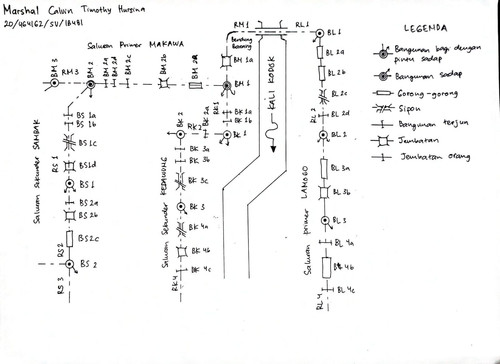 Marshal Calvin Timothy Hursina
20/464162/SV/18481
Saluran Primer MAKAWA
RM 1
RL 1
LEGENDA
Bangunan bagi dengan pintu sadap
Bangunan sadap
Gorong-gorong
Sipon
Bangunan terjun
Jembatan
Jembatan orang
Bendung
BM 3
RM 3
BM 2
BM 2a
BM 2d
BM 2c
BM 2b
BM 2a
BM 1a
BM 1
RK 1
BK 1a
BK 1b
BK 1
RK 2
BK 2a
BK 2
BK 3a
BK 3b
BK 3c
BK 3
BK 4a
BK 4b
BK 4c
RK 4
Saluran Sekunder KEDAWUNG
KALI KODOK
BS 1a
BS 1b
BS1c
BS1d
BS 1
BS2a
BS2b
BS2c
BS 2
RS 1
RS2
RS 3
Saluran Sekunder SAMBAK
BL 1
BL 1a
BL 2b
BL 2c
BL 2d
RL 2
BL 1
BL 3a
BL 3b
BL 3
BL 4a
BL 4b
BL 4c
RL 4
Saluran primer LAMOGO